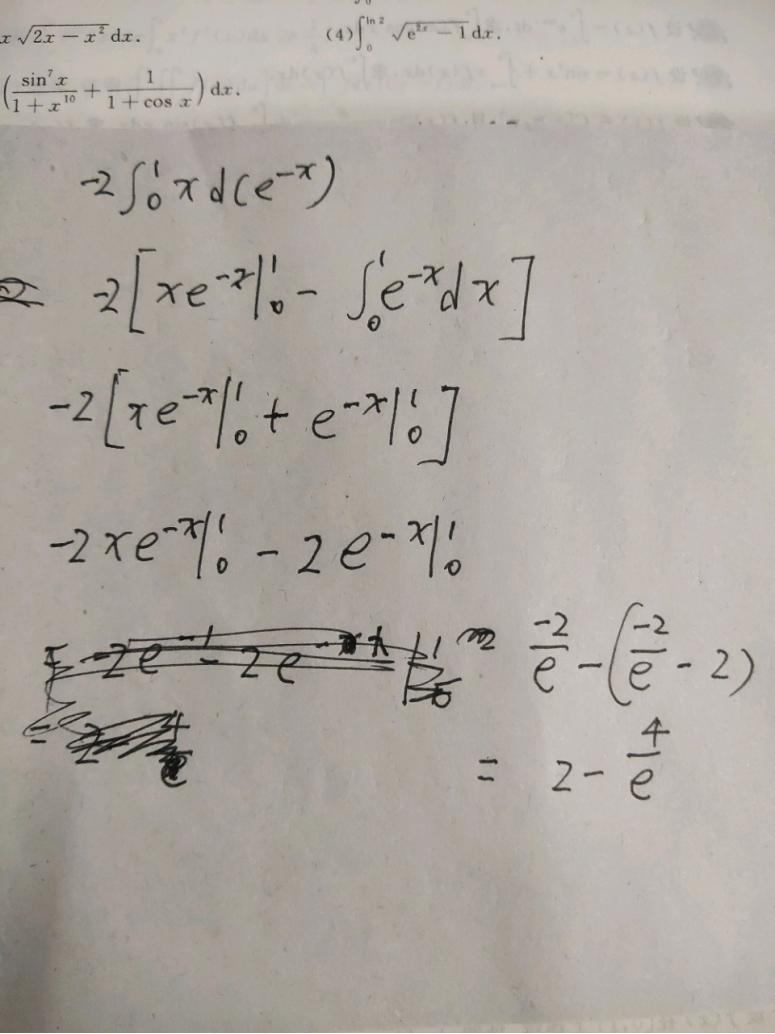 x √(2x − x²) dx. (4) ∫₀^{ln 2} √(e^{2x} − 1) dx.
(sin⁷x/(1 + x¹⁰) + 1/(1 + cos x)) dx.
-2∫₀¹ x d(e^{-x})
-2[xe^{-x}|₀¹ - ∫₀¹ e^{-x}dx]
-2[xe^{-x}|₀¹ + e^{-x}|₀¹]
-2xe^{-x}|₀¹ - 2e^{-x}|₀¹
-2/e - (-2/e - 2)
= 2 - 4/e